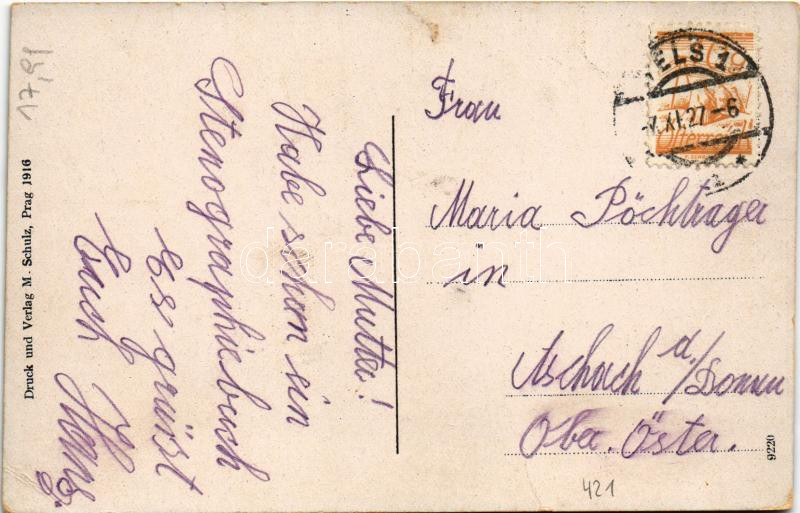 17,91
Druck und Verlag M. Schulz, Prag 1916
Liebe Mutter!
Habe schon ein
Stenographiebuch
Es grüsst
Euch Hans.
WELS 1
XI.27-6
Österreich
Frau
Maria Pöchtrager
in
Aschach a./Donau
Ober. Öster.
9220
421
darabanth